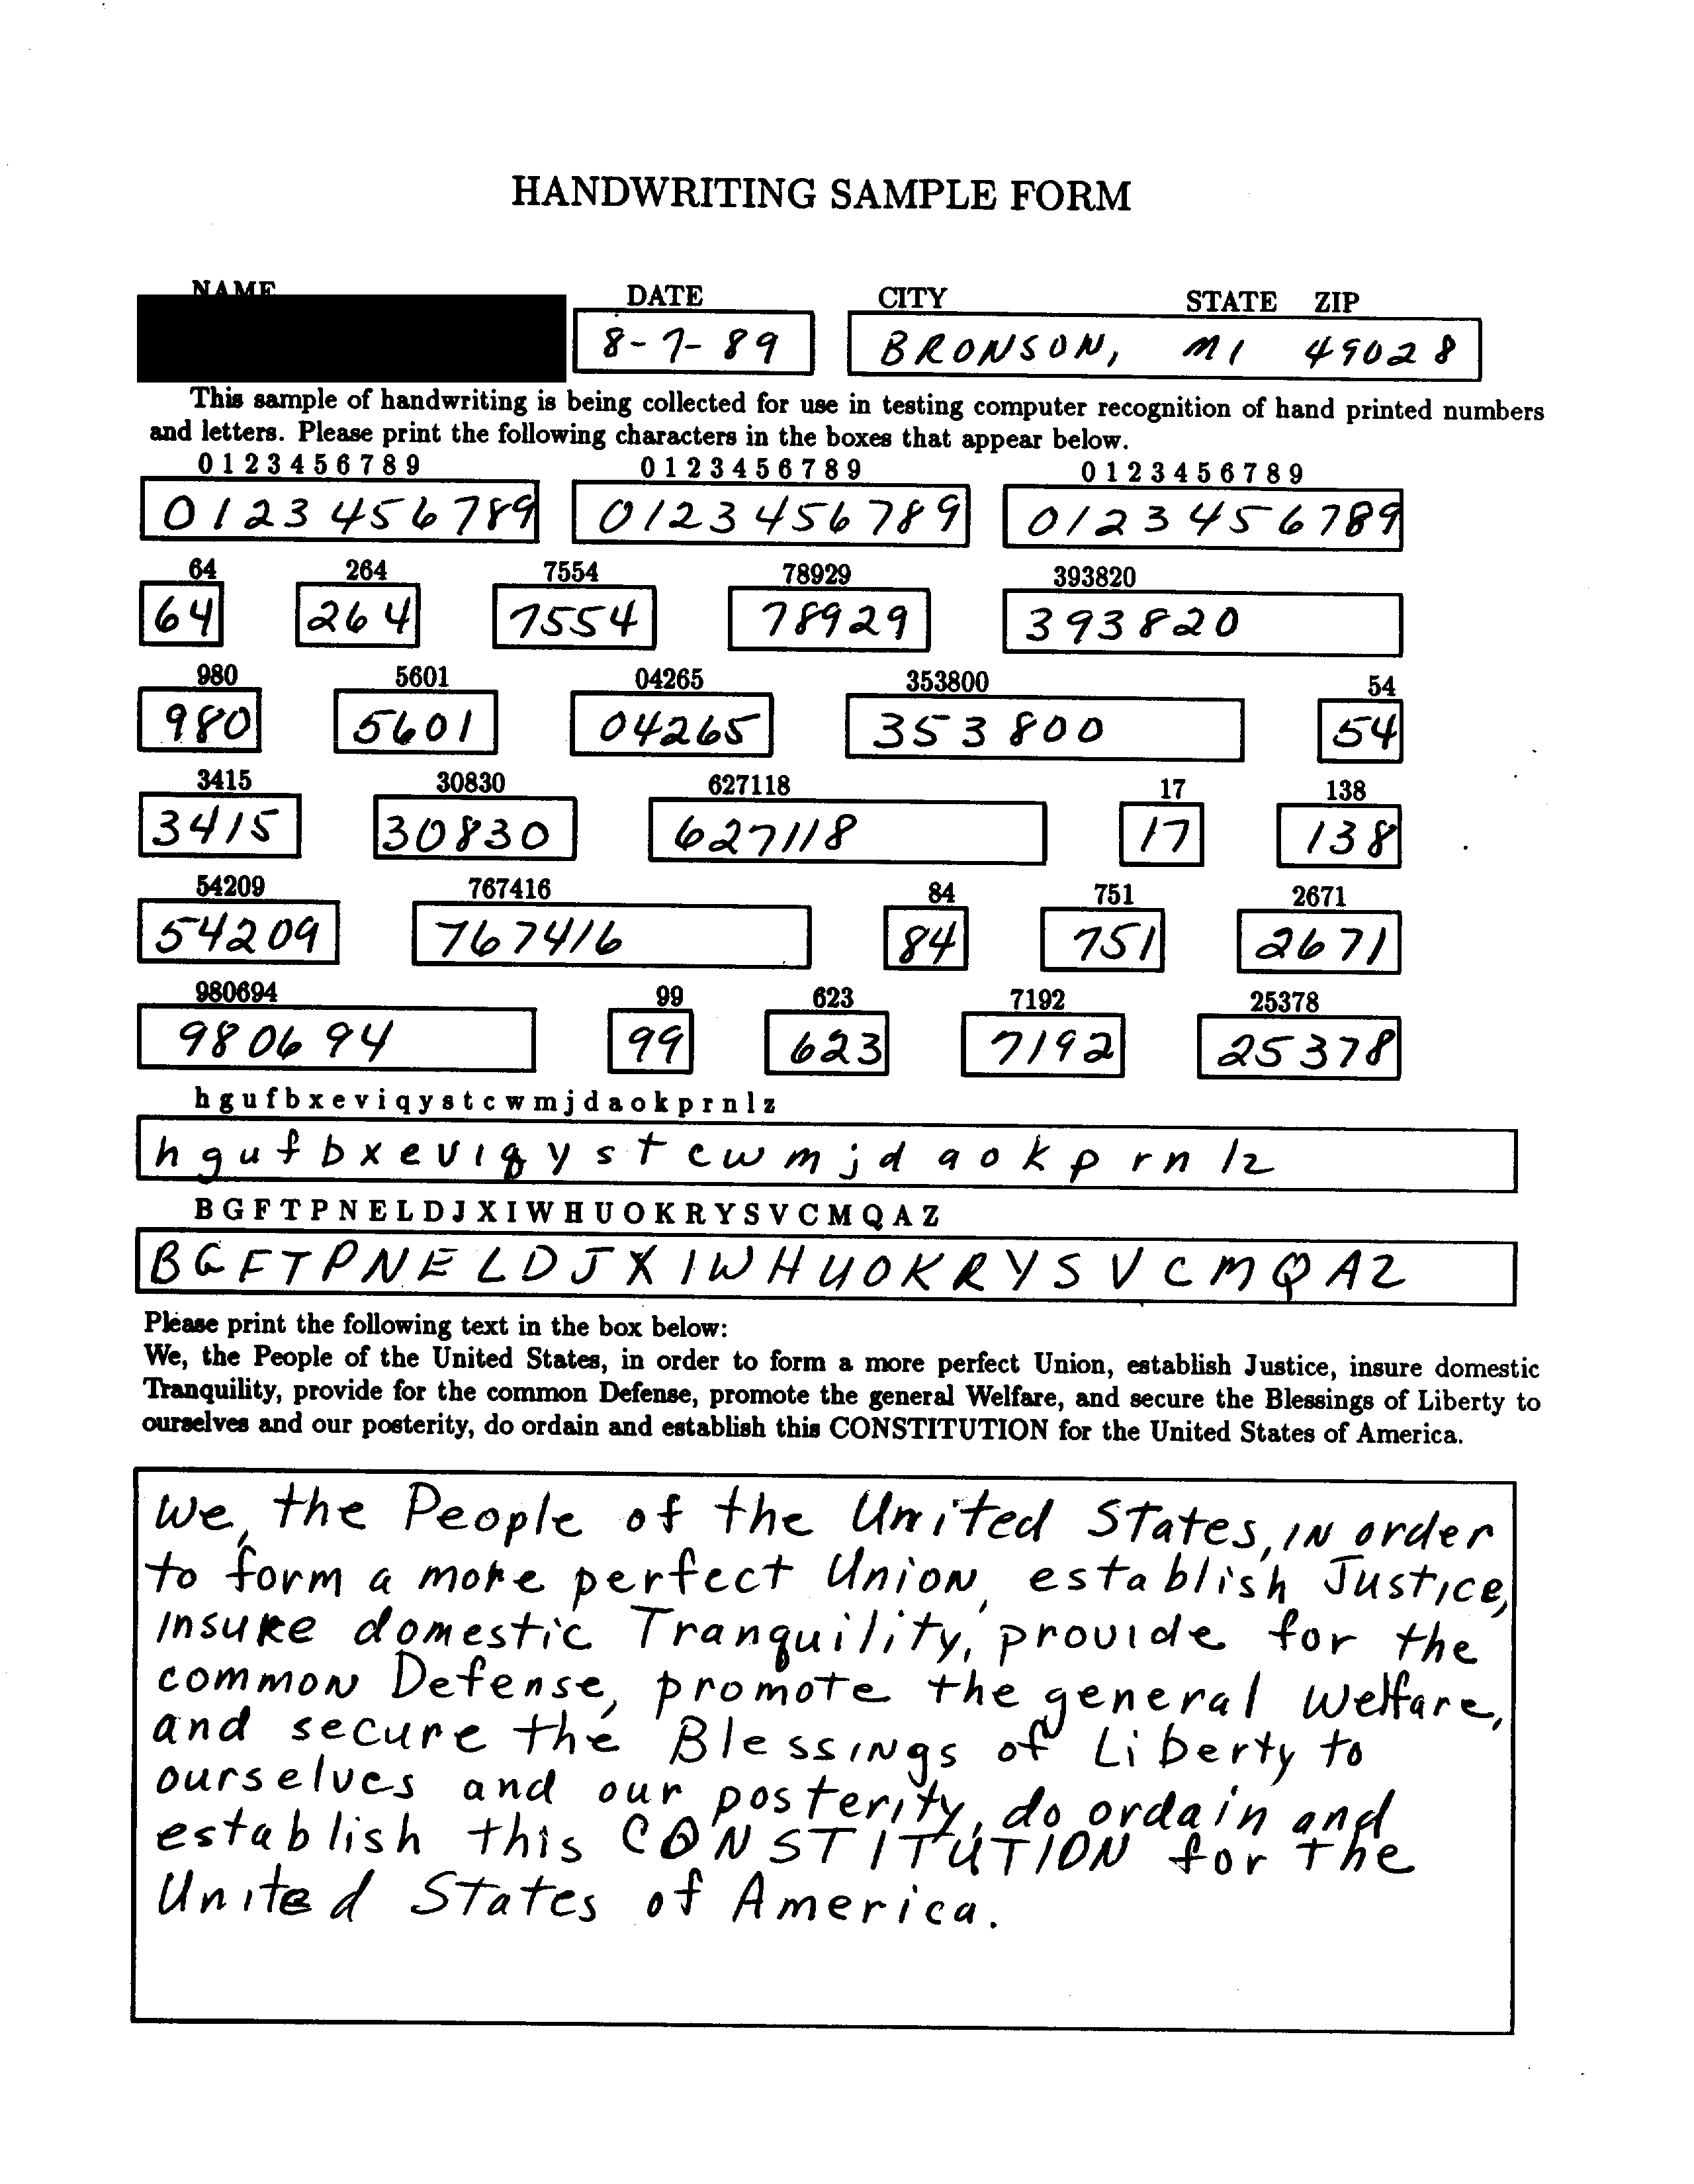 HANDWRITING SAMPLE FORM
NAME DATE CITY STATE ZIP
8-7-89 BRONSON, MI 49028
This sample of handwriting is being collected for use in testing computer recognition of hand printed numbers
and letters. Please print the following characters in the boxes that appear below.
0 1 2 3 4 5 6 7 8 9 0 1 2 3 4 5 6 7 8 9 0 1 2 3 4 5 6 7 8 9
0123456789 0123456789 0123456789
64 264 7554 78929 393820
64 264 7554 78929 393820
980 5601 04265 353800 54
980 5601 04265 353800 54
3415 30830 627118 17 138
3415 30830 627118 17 138
54209 767416 84 751 2671
54209 767416 84 751 2671
980694 99 623 7192 25378
980694 99 623 7192 25378
h g u f b x e v i q y s t c w m j d a o k p r n l z
h g u f b x e v i q y s t c w m j d a o k p r n l z
B G F T P N E L D J X I W H U O K R Y S V C M Q A Z
B G F T P N E L D J X I W H U O K R Y S V C M Q A Z
Please print the following text in the box below:
We, the People of the United States, in order to form a more perfect Union, establish Justice, insure domestic
Tranquility, provide for the common Defense, promote the general Welfare, and secure the Blessings of Liberty to
ourselves and our posterity, do ordain and establish this CONSTITUTION for the United States of America.
We, the People of the United States, IN order
to form a more perfect Union, establish Justice,
Insure domestic Tranquility, provide for the
common Defense, promote the general Welfare,
and secure the Blessings of Liberty to
ourselves and our posterity, do ordain and
establish this CONSTITUTION for the
United States of America.